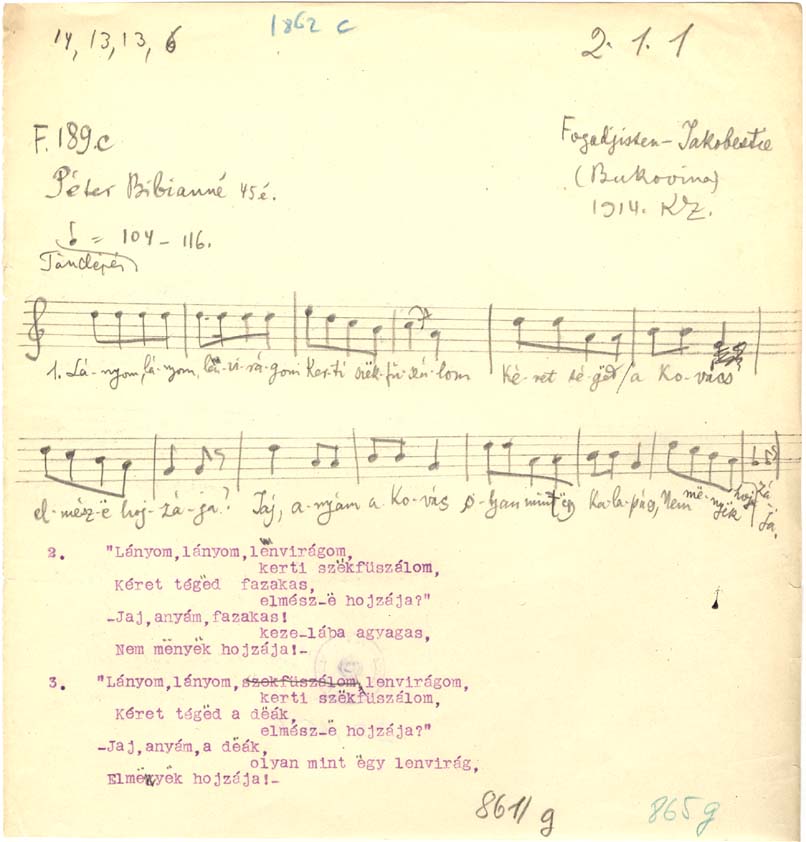 14, 13, 13, 6
1862 c
2. 1. 1
F. 189.c
Fogadjisten-Jakobestie
(Bukovina)
1914. KZ.
Péter Bibianné 45é.
= 104-116.
Tánclépés
1. Lá-nyom, lá-nyom, lën-vi-rágom Ker-ti szëk-fű-szá-lom Ké-ret té-gëd a Ko-vács
el-mész-ë hoj-zá-ja? Jaj, a-nyám a Ko-vács o-lyan mint ëgy Ka-la-pács, Nem më-nyëk hoj-zá-ja.
2. "Lányom,lányom,lënvirágom,
kerti szëkfüszálom,
Kéret tégëd fazakas,
elmész-ë hojzája?"
-Jaj,anyám,fazakas!
keze-lába agyagas,
Nem mënyëk hojzája!-
3. "Lányom,lányom,szekfüszálom,lenvirágom,
kerti szëkfüszálom,
Kéret tégëd a dëák,
elmész-ë hojzája?"
-Jaj,anyám,a dëák,
olyan mint ëgy lenvirág,
Elmënyëk hojzája!-
861/g
865g